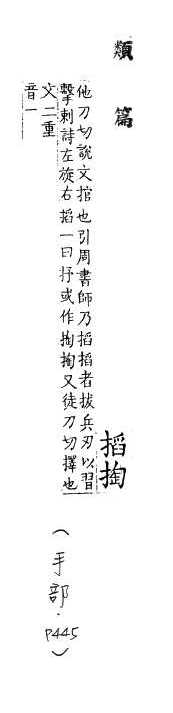 類篇
搯掏
他刀切說文捾也引周書師乃搯搯者拔兵刃以習
擊刺詩左旋右搯一曰抒或作掏掏又徒刀切擇也
文二重
音一
(手部.P445)